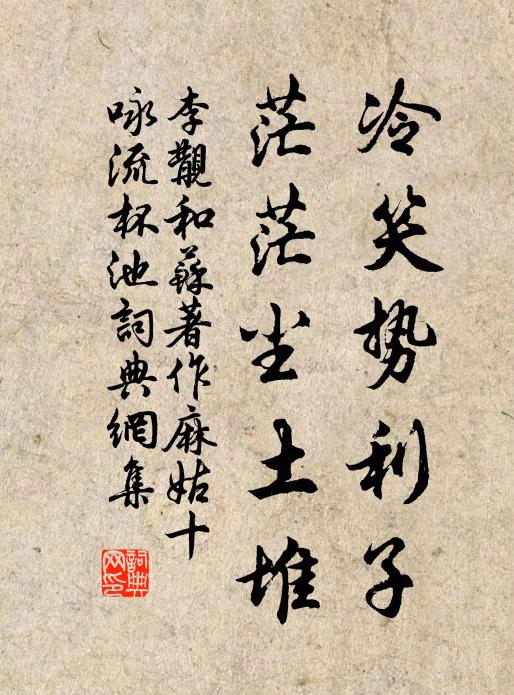 冷笑势利子
茫茫尘土堆
李覯和蘇著作麻姑十
咏流杯池詞典網集
詞典网印